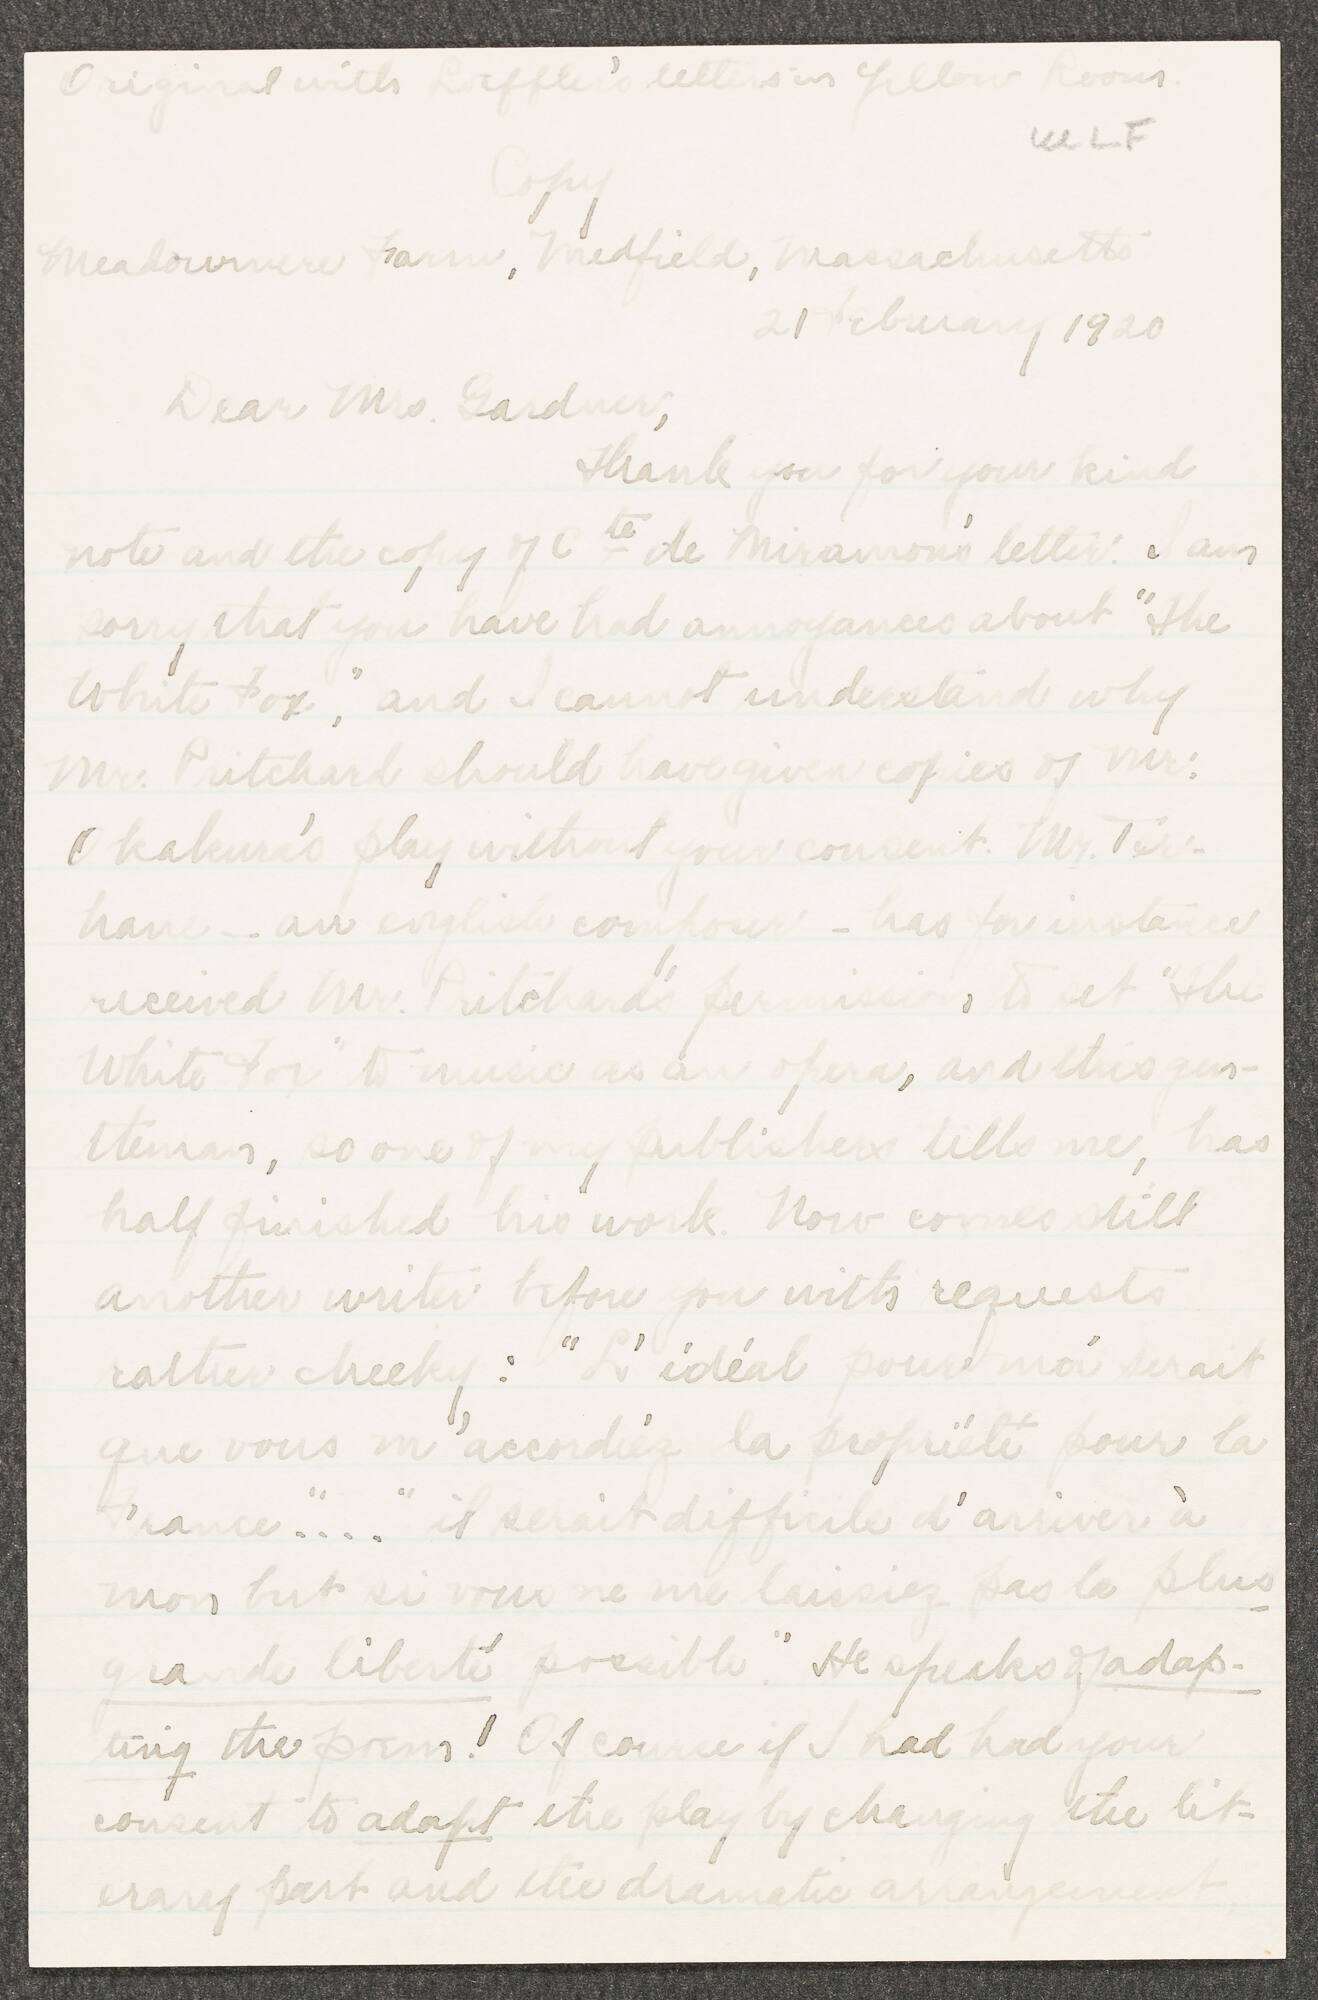 Original with Loeffler's letters in Yellow Room.
WLF
Copy
Meadowmere Farm, Medfield, Massachusetts
21 February 1920
Dear Mrs. Gardner,
Thank you for your kind
note and the copy of Cte de Miramon's letter. I am
sorry that you have had annoyances about "The
White Fox," and I cannot understand why
Mr. Pritchard should have given copies of Mr.
Okakura's play without your consent. Mr. Ter-
hane — an english composer - has for instance
received Mr. Pritchard's permission to set "The
White Fox" to music as an opera, and this gen-
tleman, so one of my publishers tells me, has
half finished his work. Now comes still
another writer before you with requests
rather cheeky: "L'idéal pour moi serait
que vous m'accordiéz la propriété pour la
France"...." il serait difficile d'arriver à
mon but si vous ne me laissiez pas la plus
grande liberté possible." He speaks of adap-
ting the poem! Of course if I had had your
consent to adapt the play by changing the lit-
erary part and the dramatic arrangement,